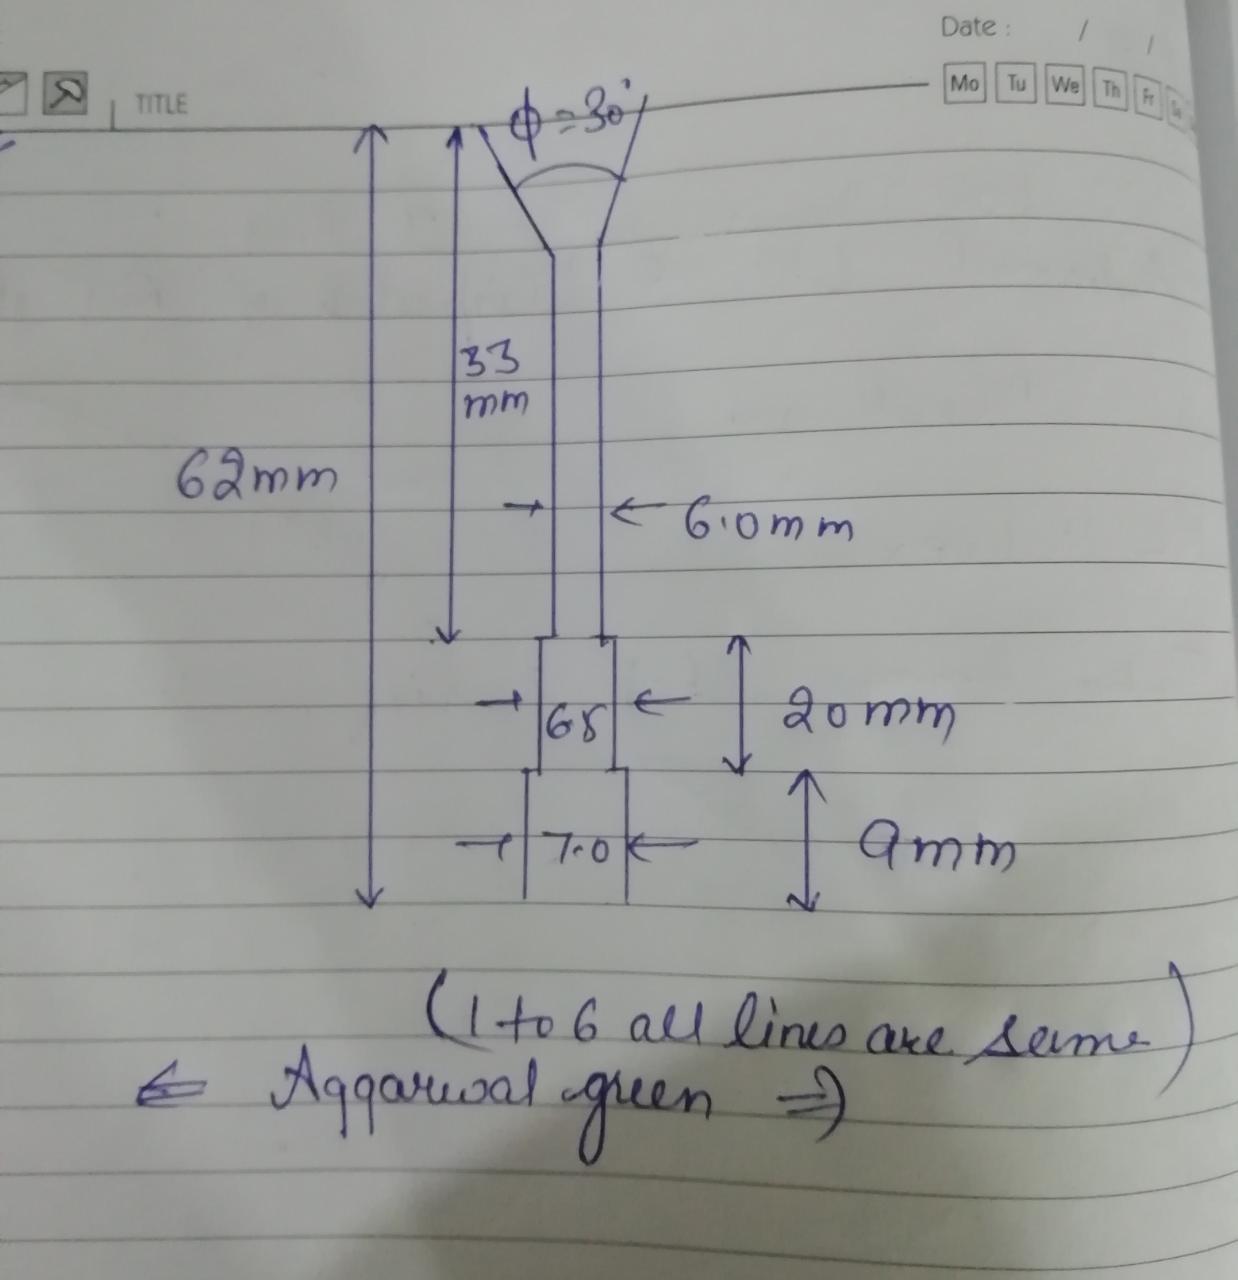 Date : / /
TITLE
Mo Tu We Th Fr Sa
ϕ = 30°
33
mm
62mm
6.0mm
6.5
20mm
7.0
9mm
(1 to 6 all lines are same)
⇐ Aggarwal green ⇒